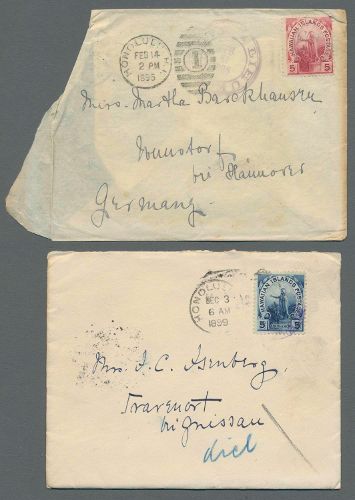 HONOLULU H.I.
FEB 14
2 PM
1896
1
HAWAIIAN ISLANDS POSTAGE
5 5
Miss. Martha Barckhausen
Wunstorf
bei Hannover
Germany.
HONOLULU
DEC 3
6 AM
1899
HAWAIIAN ISLANDS POSTAGE
5 5
Mrs. J. C. Isenberg,
Travemort
bei Gnissau